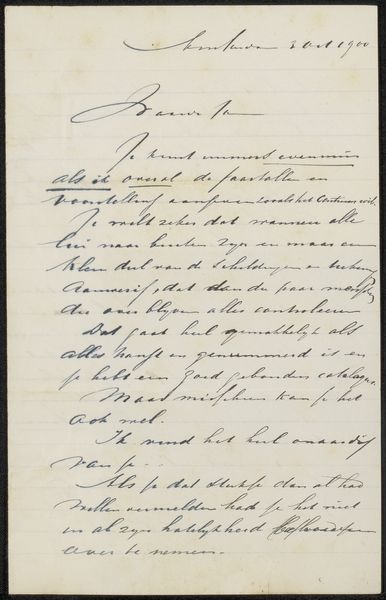 Amsterdam 3 Oct 1900
Waarde Jan
Je kunt immers evenmin
als ik overal de jaartallen en
voorstelling aangeven zooals het
Je weet zeker dat wanneer alle
lui naar buiten zyn en maar een
klein deel van de schilderyen en
aanwezig, dat dan de paar menschen
die overblyven alles controleeren
Dat gaat heel gemakkelyk als
alles hangt en genummerd is en
je hebt een goed gebonden catalogus.
Maar misschien kan je het
ook wel.
Ik vind het heel onaardig
van je...
Als je dat stukje dan al had
willen vermelden had je het niet
in al zyn hatelykheid
over te nemen.